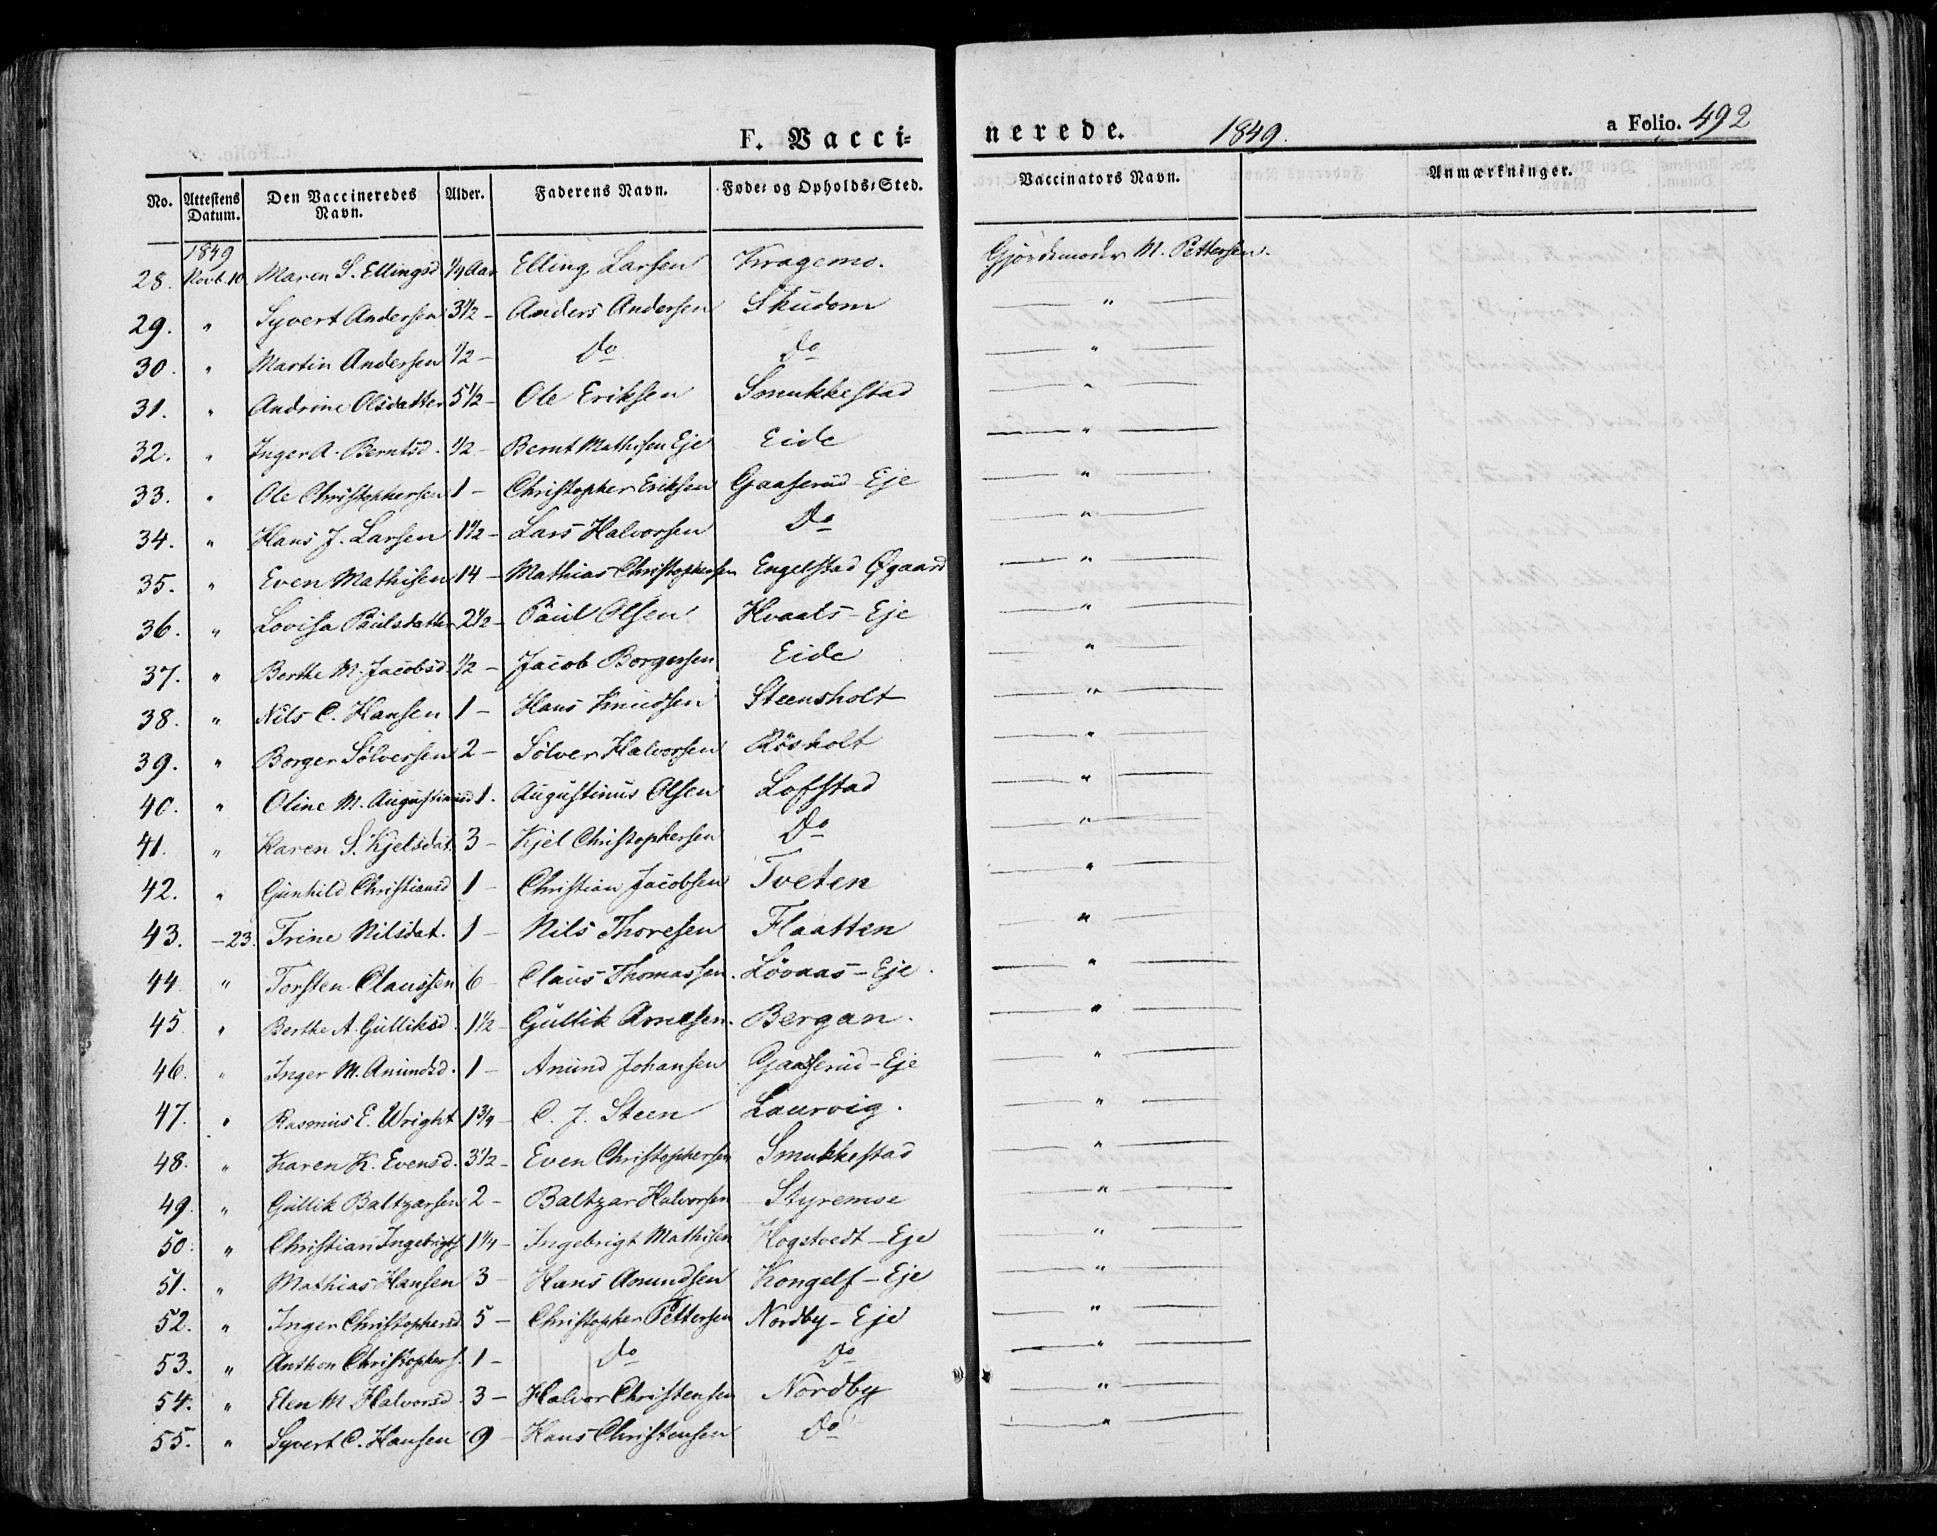 F. Vacci-
nerede. 1849. a Folio. 492
No. Attestens Datum. Den Vaccineredes Navn. Alder. Faderens Navn. Føde- og Opholds-Sted. Vaccinators Navn. Anmærkninger.
1849
28. Novb. 10 Maren S. Ellingsd 1/4 Aar Elling Larsen Kragemo. Gjørdemoder M. Pettersen.
29. " Syvert Andersen 3 1/2 - Anders Andersen Skudom — " —
30. " Martin Andersen 1/2 - Do Do — " —
31. " Andrine Olsdatter 5 1/2 - Ole Eriksen Smukkestad — " —
32. " Inger A. Berntsd. 1/2 - Bernt Mathisen Eje Eide — " —
33. " Ole Christophersen 1 - Christopher Eriksen Gaaserud - Eje — " —
34. " Hans J. Larsen 1 1/2 - Lars Halvorsen Do — " —
35. " Even Mathisen 14 - Mathias Christophersen Engelstad Øgaard — " —
36. " Lovisa Paulsdatter 2 1/2 - Paul Olsen Hvaals - Eje — " —
37. " Berthe M. Jacobsd. 1/2 - Jacob Borgersen Eide — " —
38. " Nils C. Hansen 1 - Hans Knudsen Steensholt — " —
39. " Borger Sølversen 2 - Sølver Halvorsen Røsholt — " —
40. " Oline M. Augustinusd 1. Augustinus Olsen Lofstad — " —
41. " Karen S. Kjelsdat. 3 - Kjel Christophersen Do — " —
42. " Gunhild Christiansd 1 - Christian Jacobsen Tveten — " —
43. - 23. Trine Nilsdat. 1 - Nils Thoresen Flaatten — " —
44 " Torsten Claussen 6 - Claus Thomassen. Løvaas - Eje. — " —
45. " Berthe A. Gulliksd. 1 1/2 - Gullik Arnesen. Bergan. — " —
46. " Inger M. Anundsd. 1 - Anund Johansen Gaaserud - Eje — " —
47. " Rasmus E. Wright 1 3/4 - C. J. Steen Laurvig. — " —
48. " Karen K. Evensd. 3 1/2 - Even Christophersen Smukkestad — " —
49. " Gullik Baltzarsen 2 - Baltzar Halvorsen Styremoe — " —
50. " Christian Ingebrigts. 1 1/4 - Ingebrigt Mathisen Hogstvedt - Eje — " —
51. " Mathias Hansen 3 - Hans Anundsen Kongelf - Eje — " —
52. " Inger Christophersd 5 - Christopher Pettersen Nordby - Eje — " —
53. " Anthon Christophers. 1 - Do Do — " —
54. " Elen M Halvorsd. 3 - Halvor Christensen Nordby — " —
55. " Syvert C. Hansen 9 - Hans Christensen Do — " —